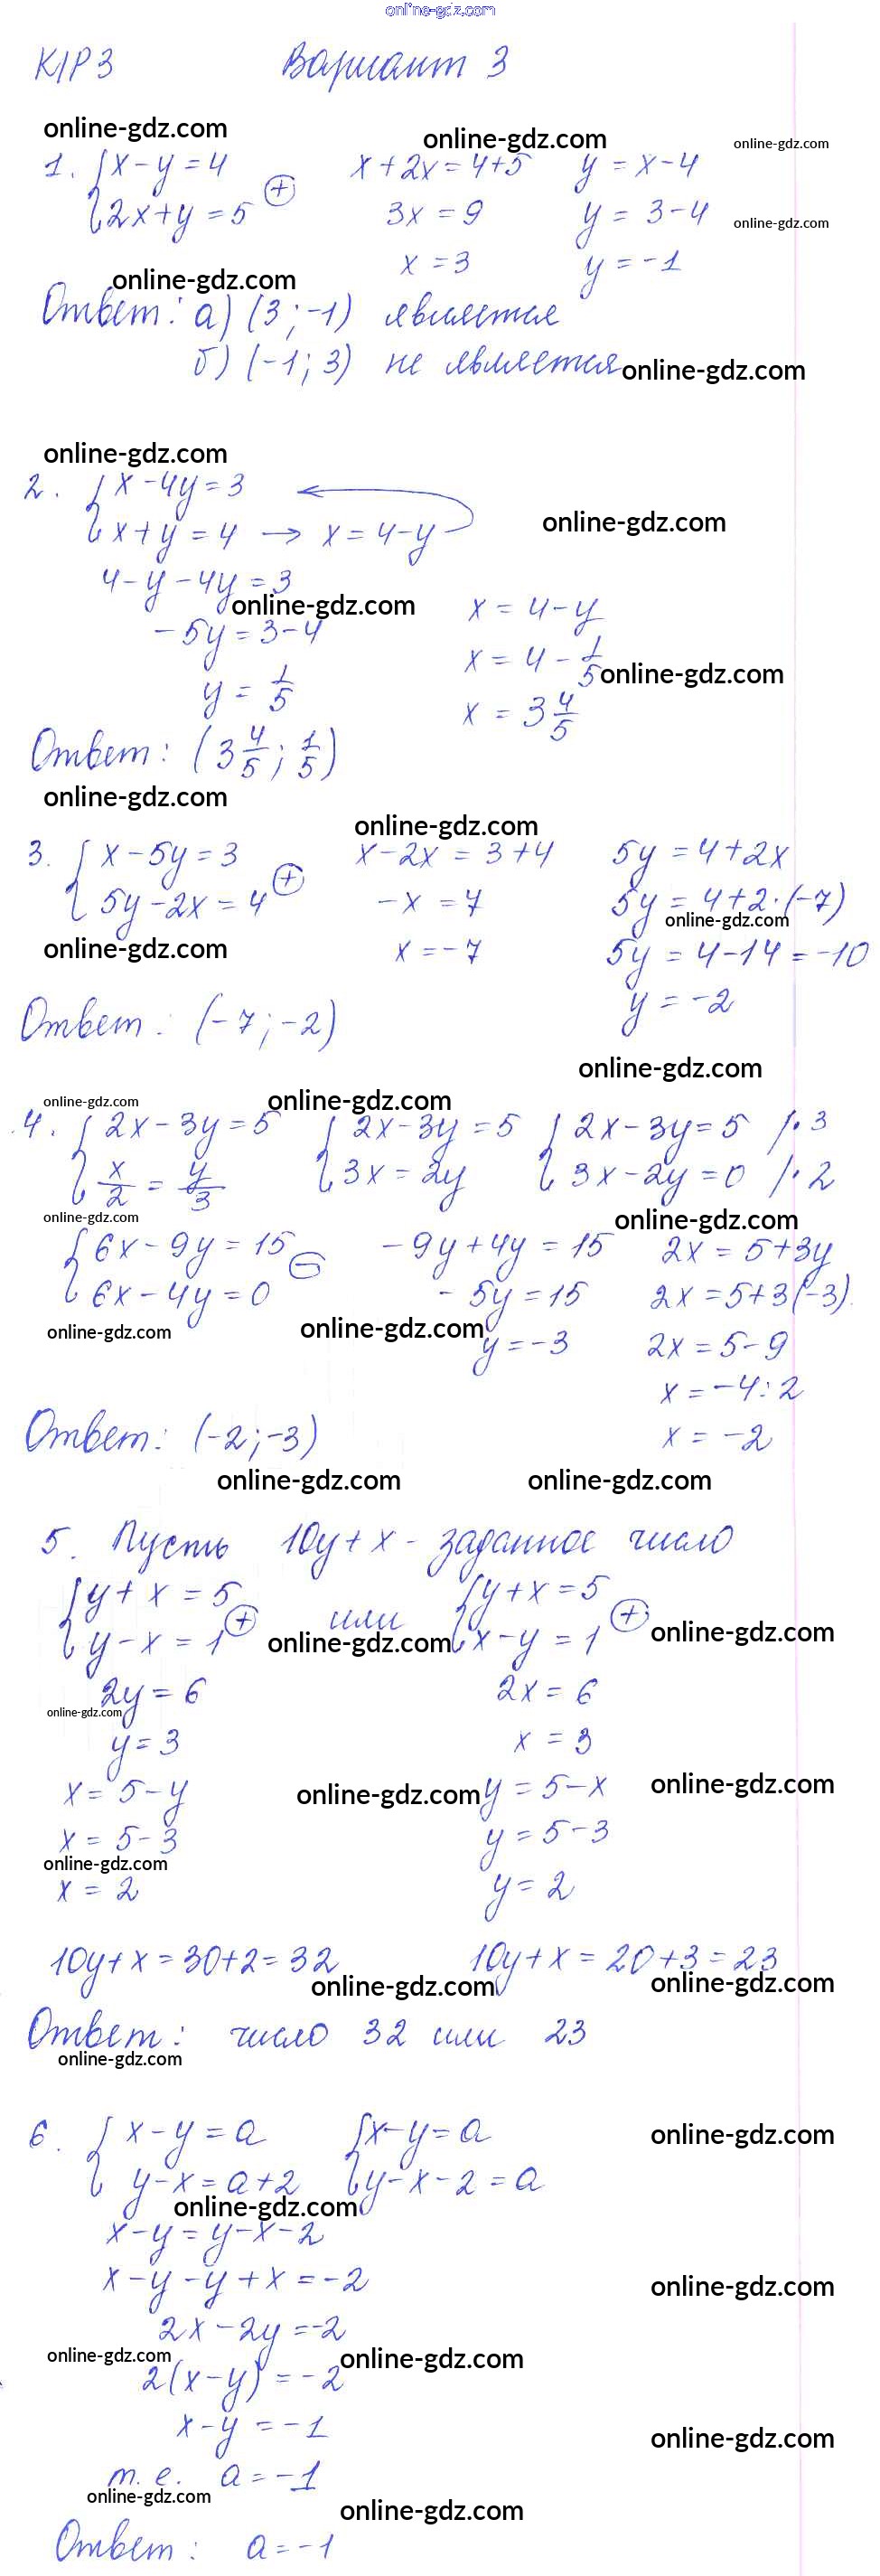 online-gdz.com
К/Р 3 Вариант 3
online-gdz.com online-gdz.com online-gdz.com
1. { x - y = 4 x + 2x = 4+5 y = x-4
2x + y = 5 (+) 3x = 9 y = 3-4 online-gdz.com
x = 3 y = -1
online-gdz.com
Ответ: а) (3; -1) является
б) (-1; 3) не является online-gdz.com
online-gdz.com
2. { x - 4y = 3
x + y = 4 → x = 4-y online-gdz.com
4 - y - 4y = 3
online-gdz.com x = 4-y
-5y = 3-4
x = 4 - 1/5 online-gdz.com
y = 1/5
x = 3 4/5
Ответ: (3 4/5; 1/5)
online-gdz.com
online-gdz.com
3. { x - 5y = 3 x - 2x = 3+4 5y = 4+2x
5y - 2x = 4 (+) -x = 7 5y = 4+2·(-7)
online-gdz.com
online-gdz.com x = -7 5y = 4-14 = -10
y = -2
Ответ: (-7; -2)
online-gdz.com
online-gdz.com online-gdz.com
4. { 2x - 3y = 5 { 2x - 3y = 5 { 2x - 3y = 5 /·3
x/2 = y/3 3x = 2y 3x - 2y = 0 /·2
online-gdz.com online-gdz.com
{ 6x - 9y = 15 (-) -9y + 4y = 15 2x = 5+3y
6x - 4y = 0 -5y = 15 2x = 5+3(-3)
online-gdz.com online-gdz.com
y = -3 2x = 5-9
x = -4:2
Ответ: (-2; -3) x = -2
online-gdz.com online-gdz.com
5. Пусть 10y + x - заданное число
{ y + x = 5 или { y + x = 5
y - x = 1 (+) online-gdz.com x - y = 1 (+) online-gdz.com
2y = 6 2x = 6
online-gdz.com
y = 3 x = 3
x = 5-y online-gdz.com y = 5-x online-gdz.com
x = 5-3 y = 5-3
online-gdz.com
x = 2 y = 2
10y + x = 30+2 = 32 10y + x = 20+3 = 23
online-gdz.com online-gdz.com
Ответ: число 32 или 23
online-gdz.com
6. { x - y = a { x - y = a online-gdz.com
y - x = a+2 y - x - 2 = a
online-gdz.com
x - y = y - x - 2
x - y - y + x = -2 online-gdz.com
2x - 2y = -2
online-gdz.com online-gdz.com
2(x - y) = -2
x - y = -1
online-gdz.com
т.е. a = -1
online-gdz.com
online-gdz.com
Ответ: a = -1